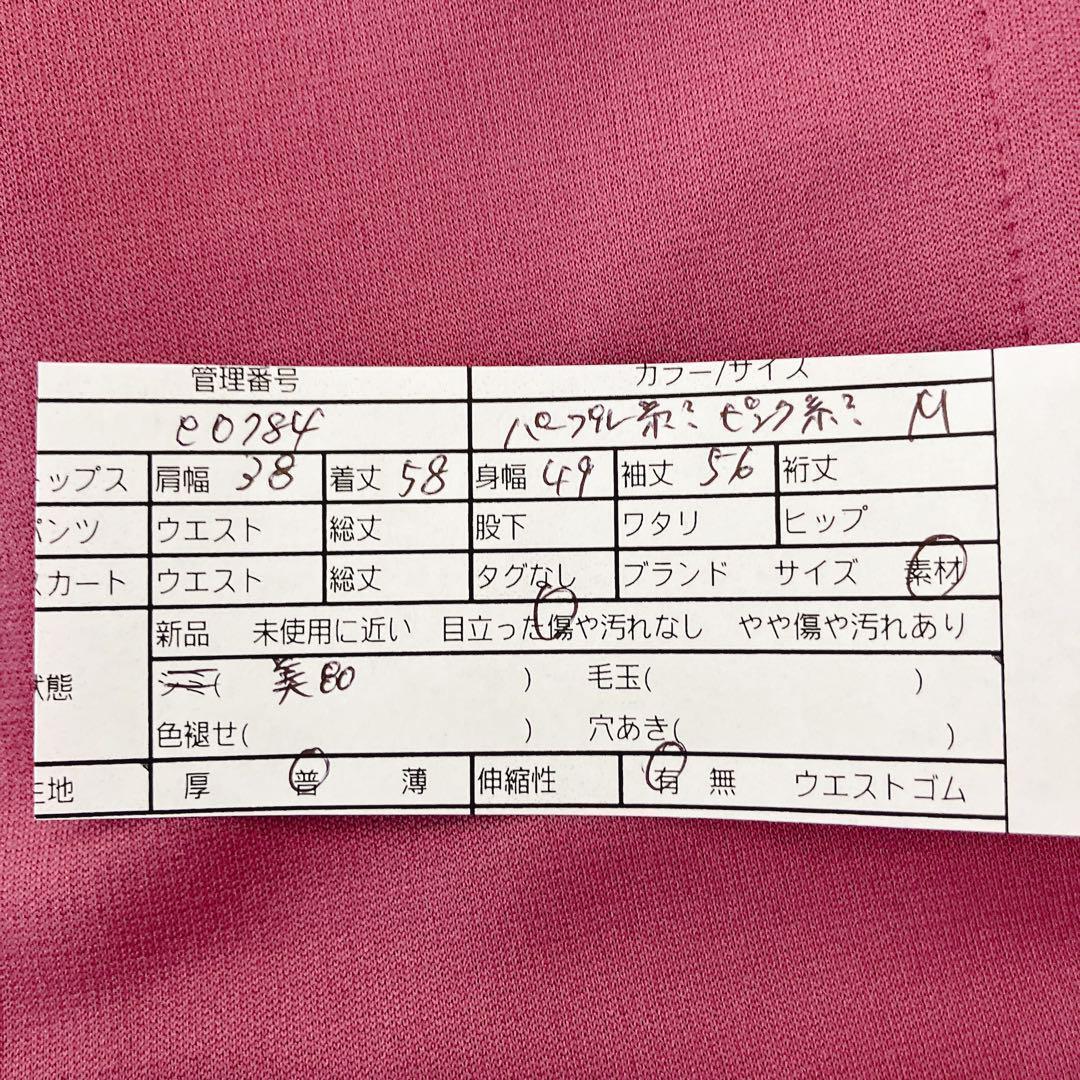 管理番号 カラー/サイズ
e0784 パープル系? ピンク系? M
トップス 肩幅 38 着丈 58 身幅 49 袖丈 56 裄丈
パンツ ウエスト 総丈 股下 ワタリ ヒップ
スカート ウエスト 総丈 タグなし ブランド サイズ 素材
新品 未使用に近い 目立った傷や汚れなし やや傷や汚れあり
状態 シミ( 美80 ) 毛玉( )
色褪せ( ) 穴あき( )
生地 厚 普 薄 伸縮性 有 無 ウエストゴム